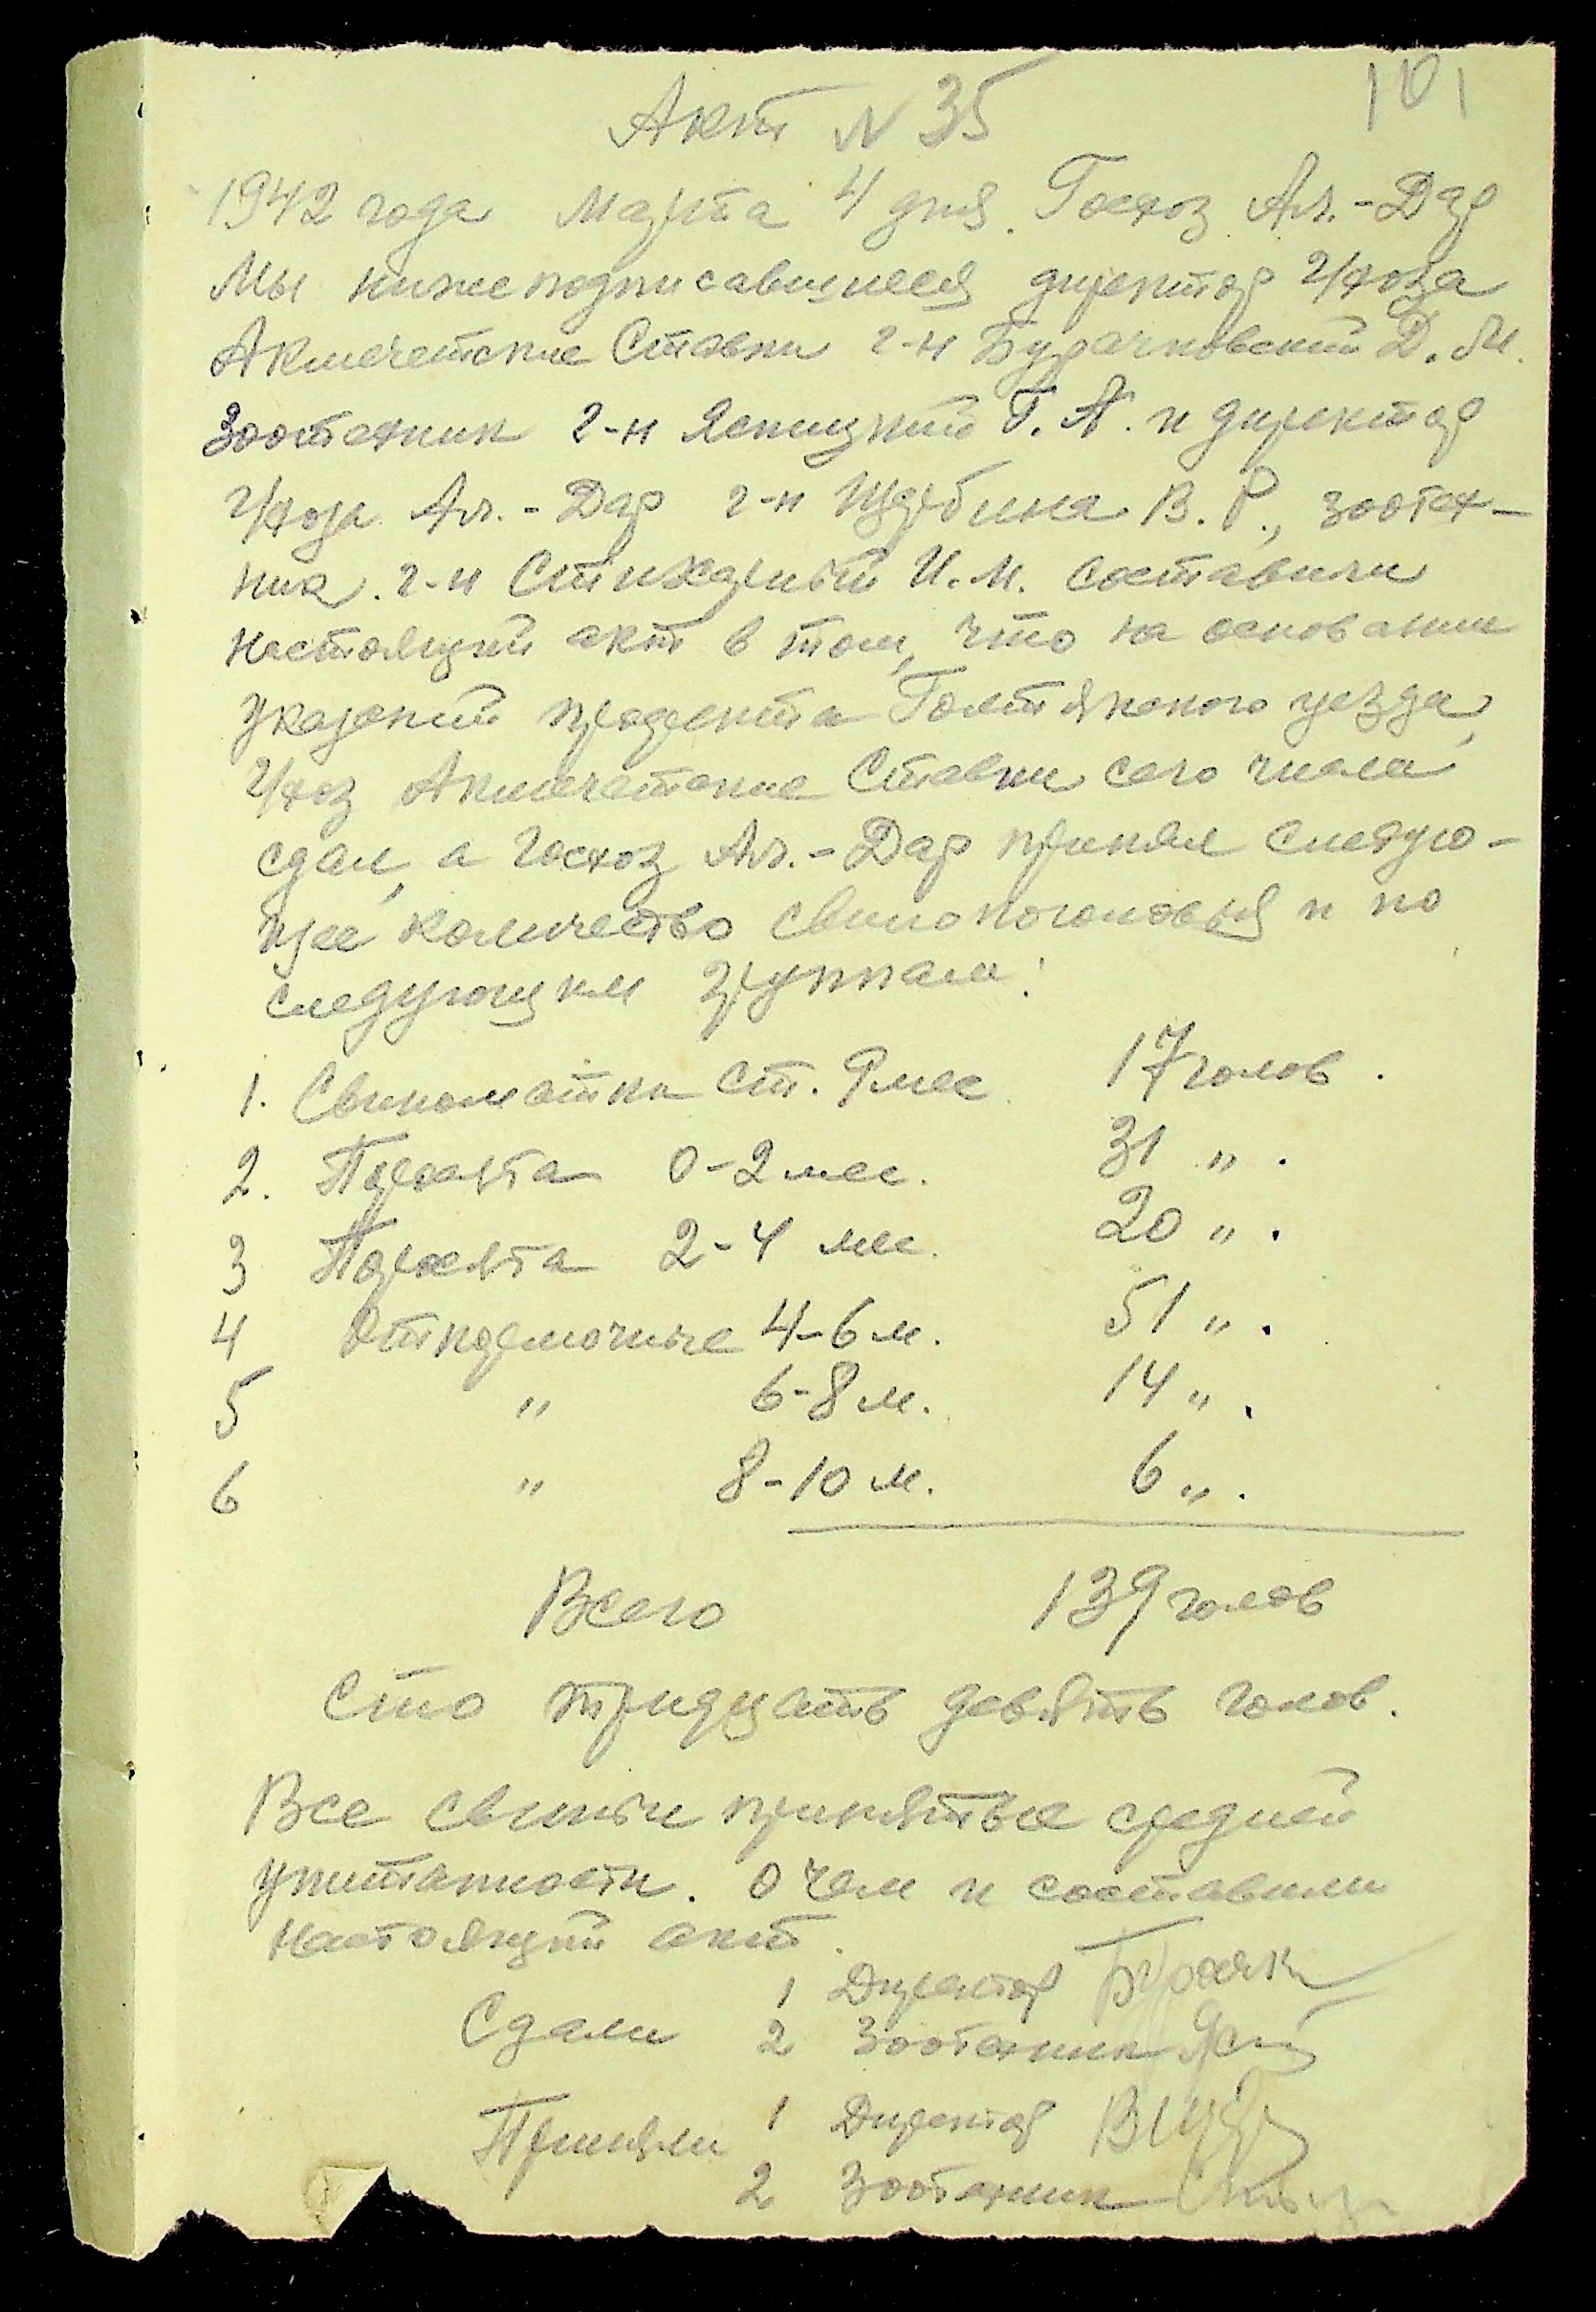 101
Акт N 35
1942 года Марта 4 дня. Госхоз Ал.-Дар
Мы нижеподписавшиеся директор г/хоза
Акмечетские Ставки г-н Бурачковский Д. М.
Зоотехник г-н Ясницкий Г. А. и директор
г/хоза Ал.-Дар г-н Щербина В. Р., зоотех-
ник г-н И. М. составили
настоящий акт в том, что на основании
указаний префекта Голтянского уезда,
г/хоз Акмечетские Ставки сего числа
сдал, а госхоз Ал.-Дар принял следую-
щее количество свинопоголовья и по
следующим группам:
1. Свиноматки ст. 9 мес 17 голов.
2. Поросята 0-2 мес. 31 ".
3 Поросята 2-4 мес. 20 ".
4 Откормочные 4-6 м. 51 ".
5 " 6-8 м. 14 ".
6 " 8-10 м. 6 ".
Всего 139 голов
Сто тридцать девять голов.
Все свиньи принятые средней
упитанности. О чем и составили
настоящий акт.
1 Директор Бурачк
Сдали 2 Зоотехник
1 Директор
Приняли
2 Зоотехник